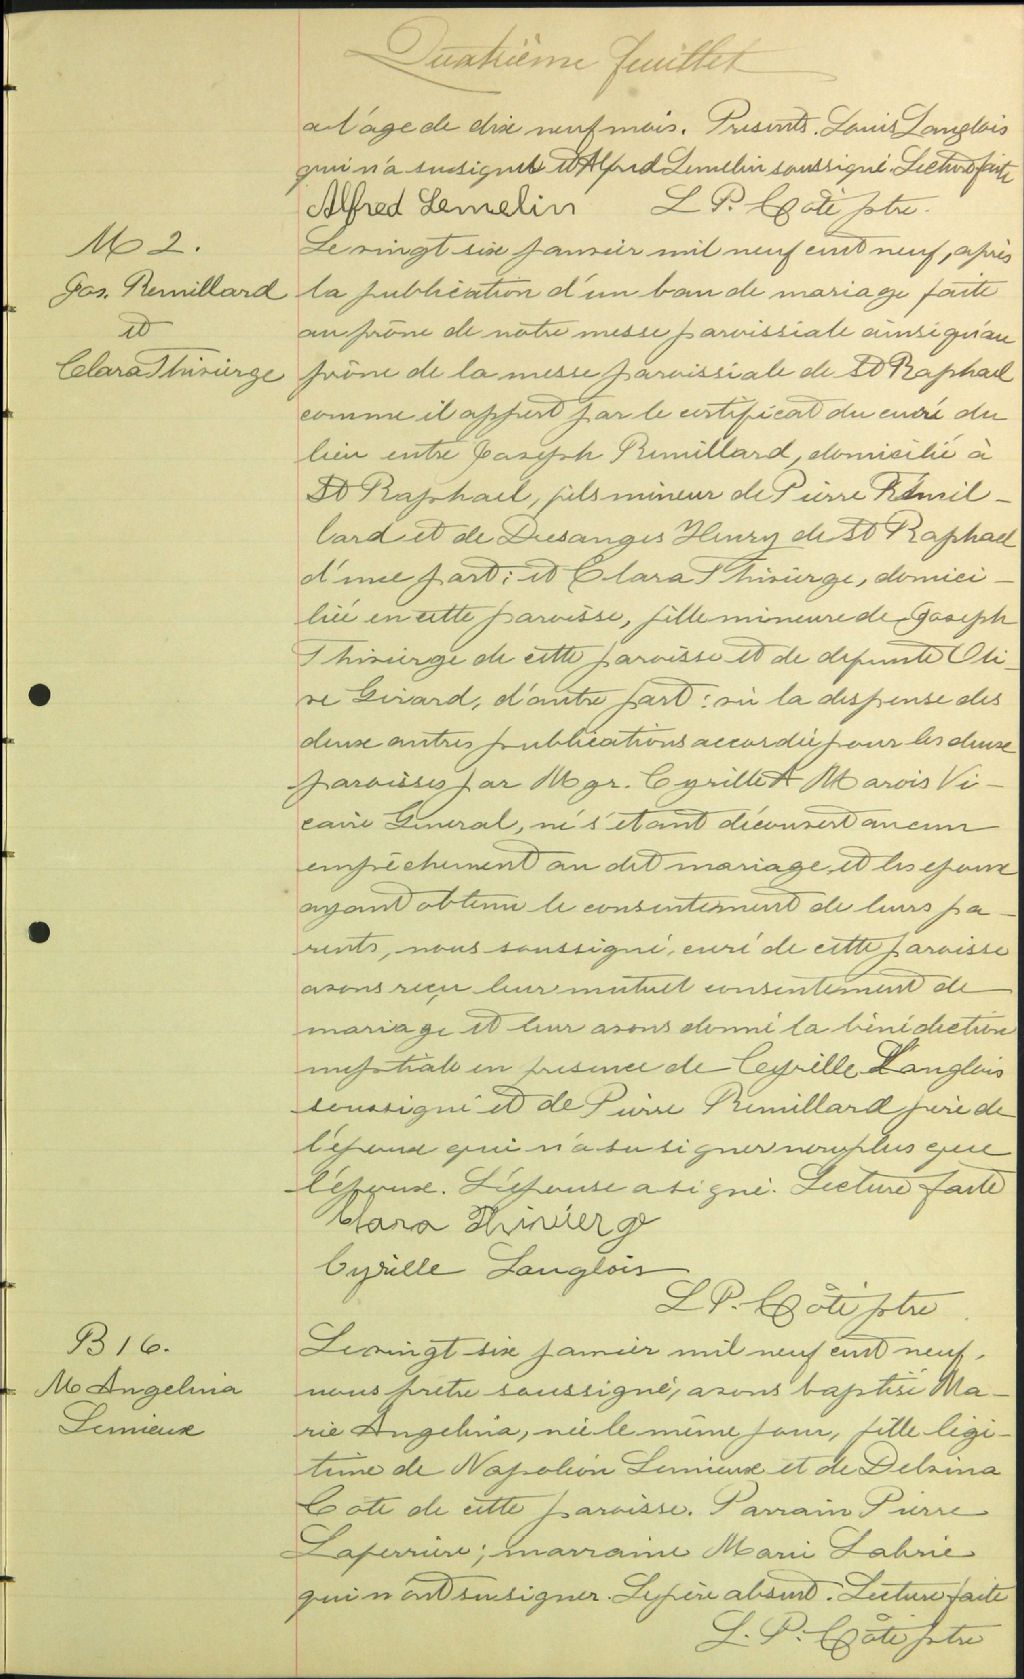 Quatrième feuillet
a l'age de dix neuf mois. Presents. Louis Langlois
qui n'a su signer et Alfred Lemelin soussigné. Lecture faite
Alfred Lemelin L P. Côté ptre.
M 2.
Jos. Remillard
et
Clara Thivierge
Le vingt six janvier mil neuf cent neuf, après
la publication d'un ban de mariage faite
au prône de notre messe paroissiale ainsi qu'au
prône de la messe paroissiale de St Raphael
comme il appert par le certificat du curé du
lieu entre Joseph Remillard, domicilié à
St Raphael, fils mineur de Pierre Rémil-
lard et de Desanges Henry de St Raphael
d'une part: et Clara Thivierge, domici-
liée en cette paroisse, fille mineure de Joseph
Thivierge de cette paroisse et de defunte Oli-
ve Girard, d'autre part: vu la dispense des
deux autres publications accordée pour les deux
paroisses par Mgr. Cyrille A Marois Vi-
caire General, ne s'étant découvert aucun
empêchement au dit mariage et les epoux
ayant obtenu le consentement de leurs pa-
rents, nous soussigné, curé de cette paroisse
avons reçu leur mutuel consentement de
mariage et leur avons donné la bénédiction
nuptiale en presence de Cyrille Langlois
soussigné et de Pierre Remillard père de
l'époux qui n'a su signer non plus que
l'époux. L'épouse a signé. Lecture faite
Clara Thivierge
Cyrille Langlois
L P. Côté ptre
B 16.
M Angelina
Lemieux
Le vingt six janvier mil neuf cent neuf,
nous prêtre soussigné, avons baptisé Ma-
rie Angelina, née le même jour, fille légi-
time de Napoléon Lemieux et de Delvina
Cote de cette paroisse. Parrain Pierre
Laferriere; marraine Marie Labrie
qui n'ont su signer. Le père absent. Lecture faite
L. P. Côté ptre